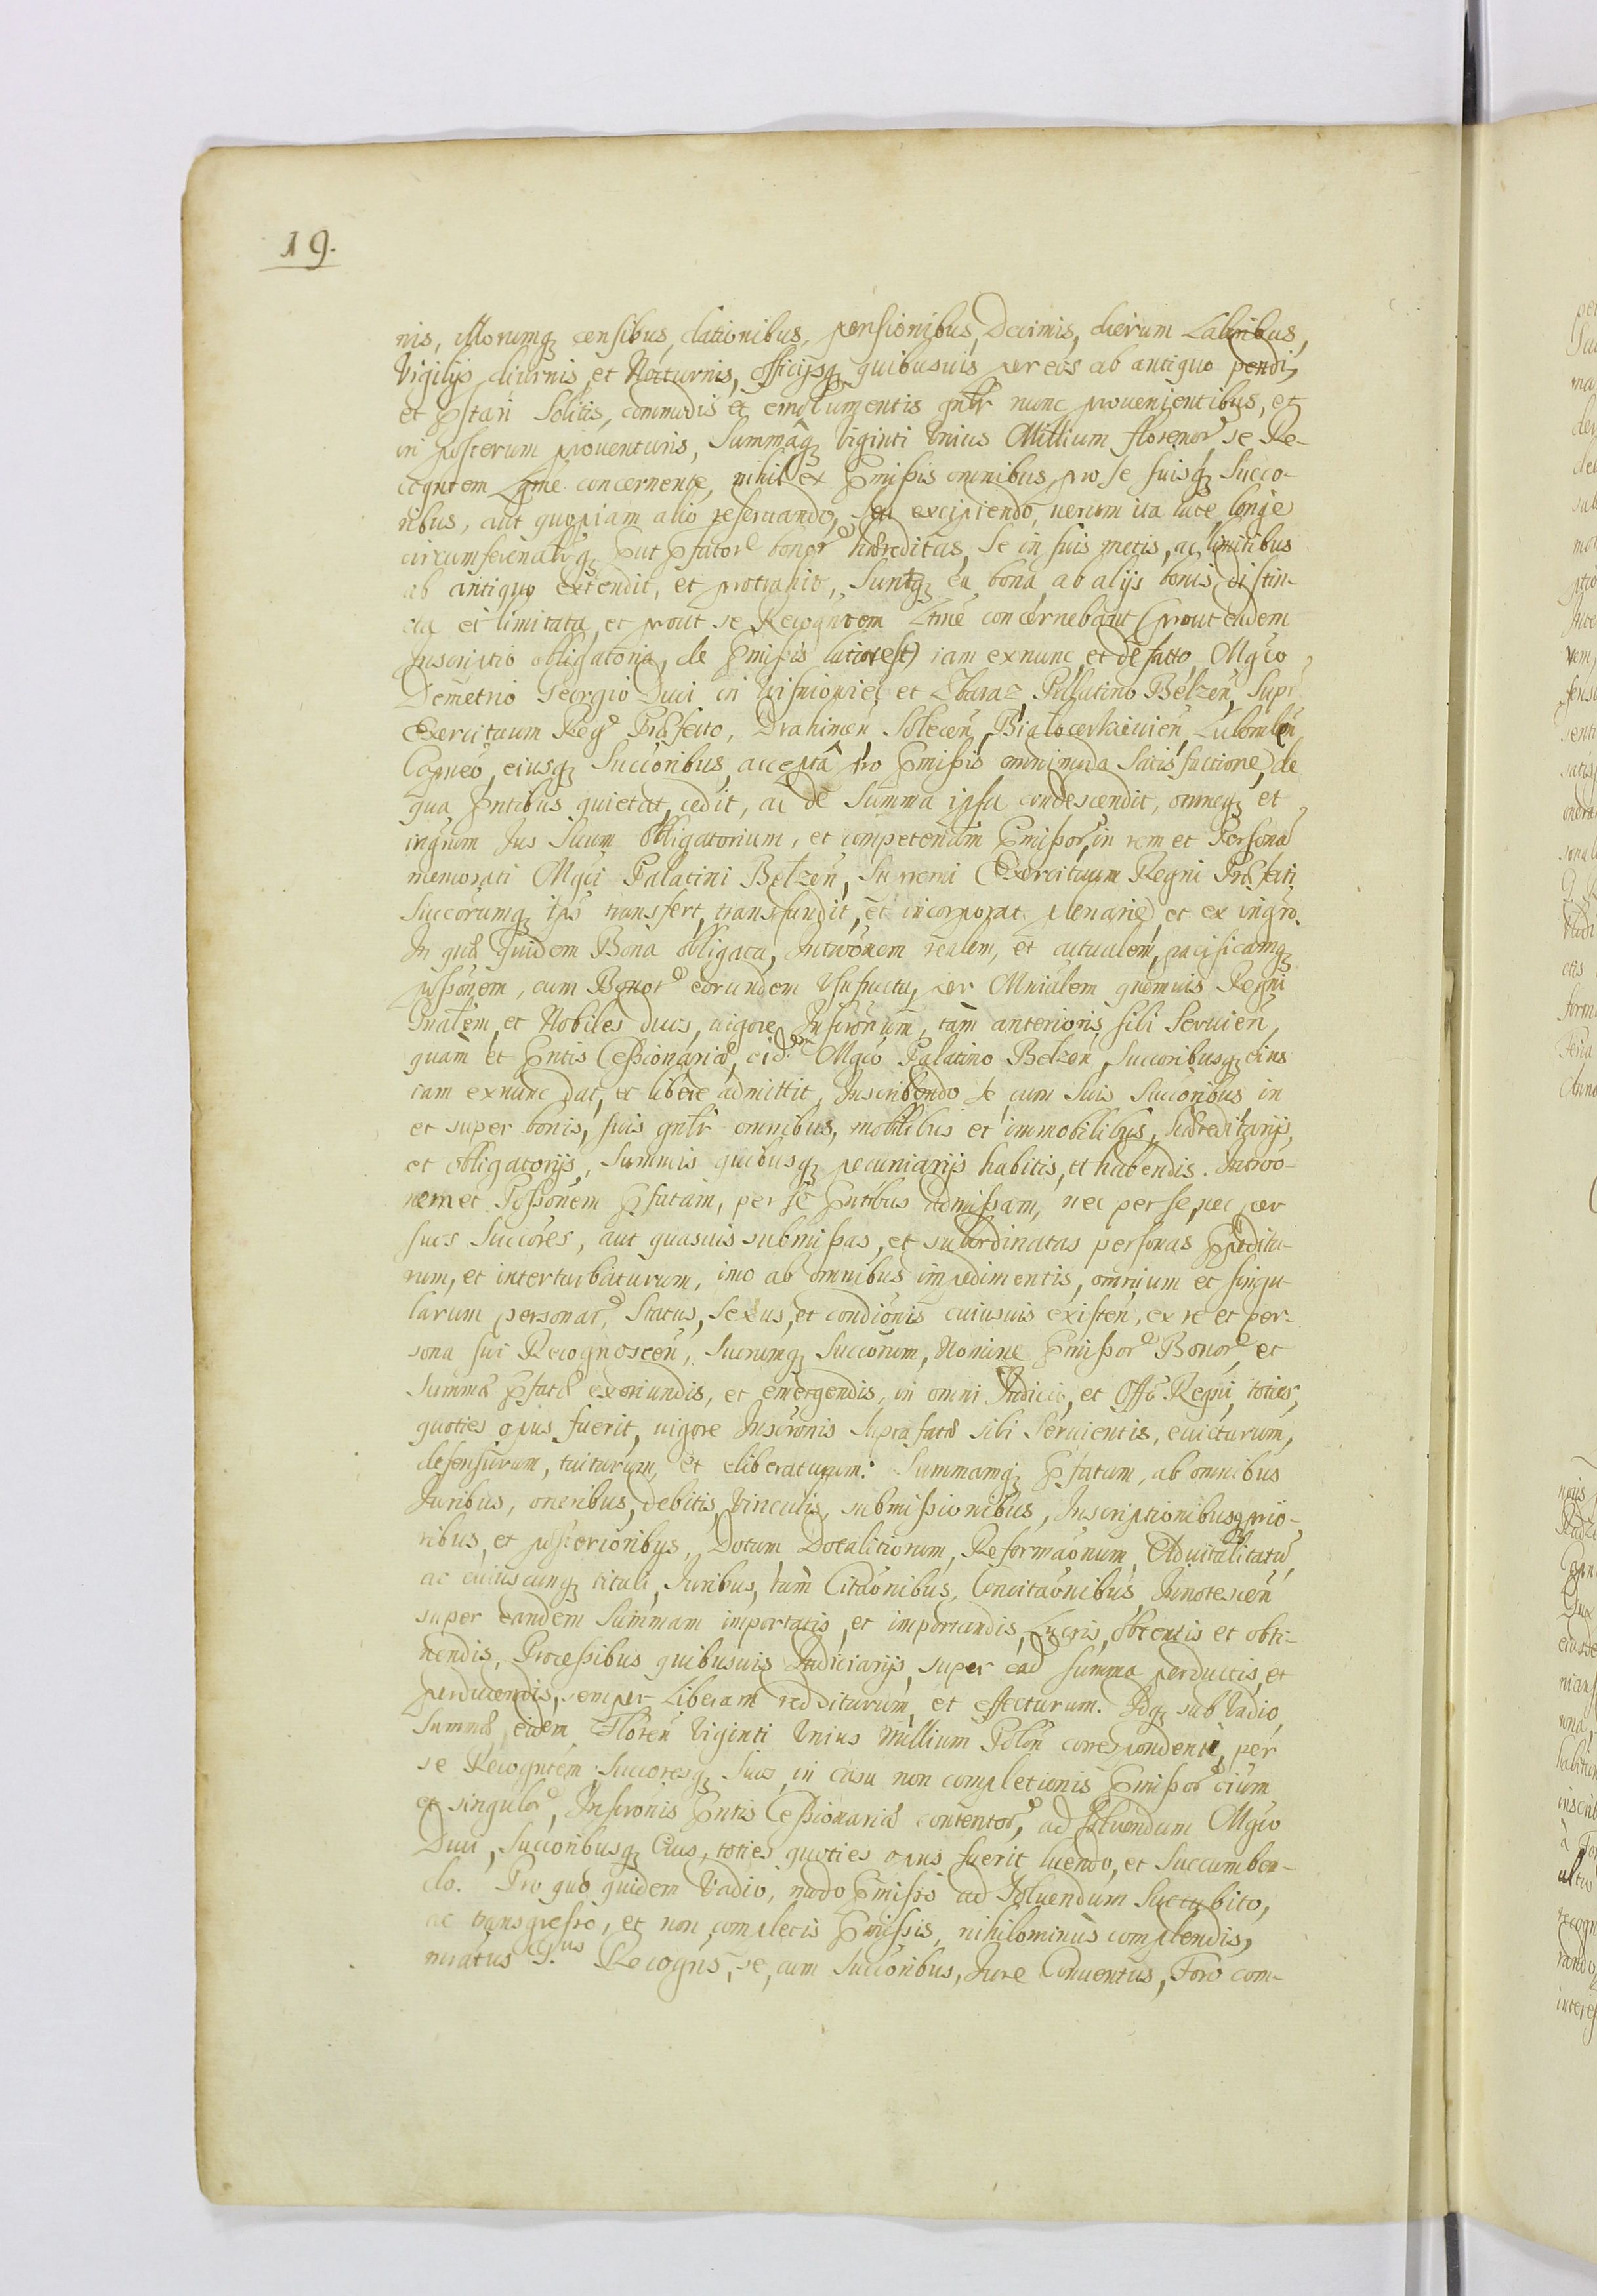 19.
nis, illorumq censibus, dationibus, pensionibus, Decimis, dierum Laboribus,
Vigilijs diurnis et Nocturnis, Officijsq quibusuis per eos ab antiquo pendi,
et pstari Solitis, commodis et emolumentis gnlr nunc prouenientibus, et
in posterum prouenturis, Summâq Viginti Vnius Millium florenor se Re-
cogntem Ltme concernente, nihil ex pmißis omnibus pro se suisq Succo-
ribus, aut quopiam alio reseruando, seu excipiendo, uerum ita late, longe
circumferenalrq put pfator bonor hæreditas, se in suis metis, ac limitibus
ab antiquo extendit, et protrahit, Suntq ea bona ab alijs bonis distin-
cta et limitata, et prout se Recogntem Ltme concernebant (prout eadem
Inscriptio obligatoria, de pmißis latior est) iam exnunc et de facto Mgco
Demetrio Georgio Duci in Wisniowiec et Zbaraz, Palatino Belzen, Supr
Exercituum Reg Præfecto, Drahimen Solecen, Bialocerkiewien, Lubomlen
Capneo, eiusq Succoribus, acceptâ pro pmißis omnimoda Satisfactione, de
qua pntibus quietat, cedit, ac de Summa ipsa condescendit, omneq et
ingrum Ius Suum obligatorium, et competentiam pmißor, in rem et Personã
memorati Mgci Palatini Belzen, Supremi Exercituum Regni Præfecti
Succorumq ips transfert, transfundit, et incorporat plenarie, et ex ingro.
In quæ quidem Bona obligata, Intronem realem, et actualem, pacificamq
possonem, cum Bonor eorundem Vsufructu, per Mnialem quemuis Regni
Gnalem, et Nobiles duos, uigore Inscronum, tam anterioris sibi Seruien,
quam et pntis Ceßionariæ, eid Mgco Palatino Belzen, Succoribusq eius
iam exnunc dat, et libere admittit, Inscribendo se cum Suis Succoribus in
et super bonis, suis gnlr omnibus, mobilibus et immobilibus, hæreditarijs,
et obligatorijs, Summis quibusq pecuniarijs habitis, et habendis. Intro-
nem et Poßonem pfatam, per se pntibus admißam, nec per se, nec per
suos Succores, aut quasuis submißas, et subordinatas personas ppeditu-
rum, et interturbaturum, imo ab omnibus impedimentis, omnium et singu-
larum personar, Status, Sexus, et condionis cuiusuis existen, ex re et per-
sona sui Recognoscen, Suorumq Succorum, Nomine pmißor Bonor, et
Summæ pfatæ exoriundis, et emergendis, in omni Iudicio, et Offo Regni, toties,
quoties opus fuerit, uigore Inscronis Suprafatæ sibi Seruientis, euicturum,
defensurum, tuiturum, et eliberaturum. Summamq pfatam, ab omnibus
Iuribus, oneribus, debitis, Vinculis, submißionibus, Inscriptionibusq prio-
ribus, et posterioribus, Dotum Dotalitiorum, Reformaonum, Aduitalitatũ,
ac cuiuscunq tituli, Iuribus, tum Citaonibus, Concitaonibus, Innotescen
super eandem Summam importatis, et importandis, Lucris, obtentis et obti-
nendis, Proceßibus quibusuis Iudiciarijs, super ead Summa perductis, et
perducendis, semper Liberam redditurum, et effecturum. Idq sub Vadio,
Summæ, eidem Floren Viginti Vnius Millium Polon correspondenti, per
se Recogntem, Succoresq Suos, in casu non completionis pmißor oium
et singulor, Inscronis pntis Ceßionariæ contentor, ad Soluendum Mgco
Duci, Succoribusq Eius, toties quoties opus fuerit luendo, et Succumben-
do. Pro quo quidem Vadio, modo pmißo ad Soluendum Succubito,
ac transgreßo, et non completis pmißis, nihilominùs complendis,
mratus G.us Recogns, se, cum Succoribus, Iure Conuentus, Foro com-